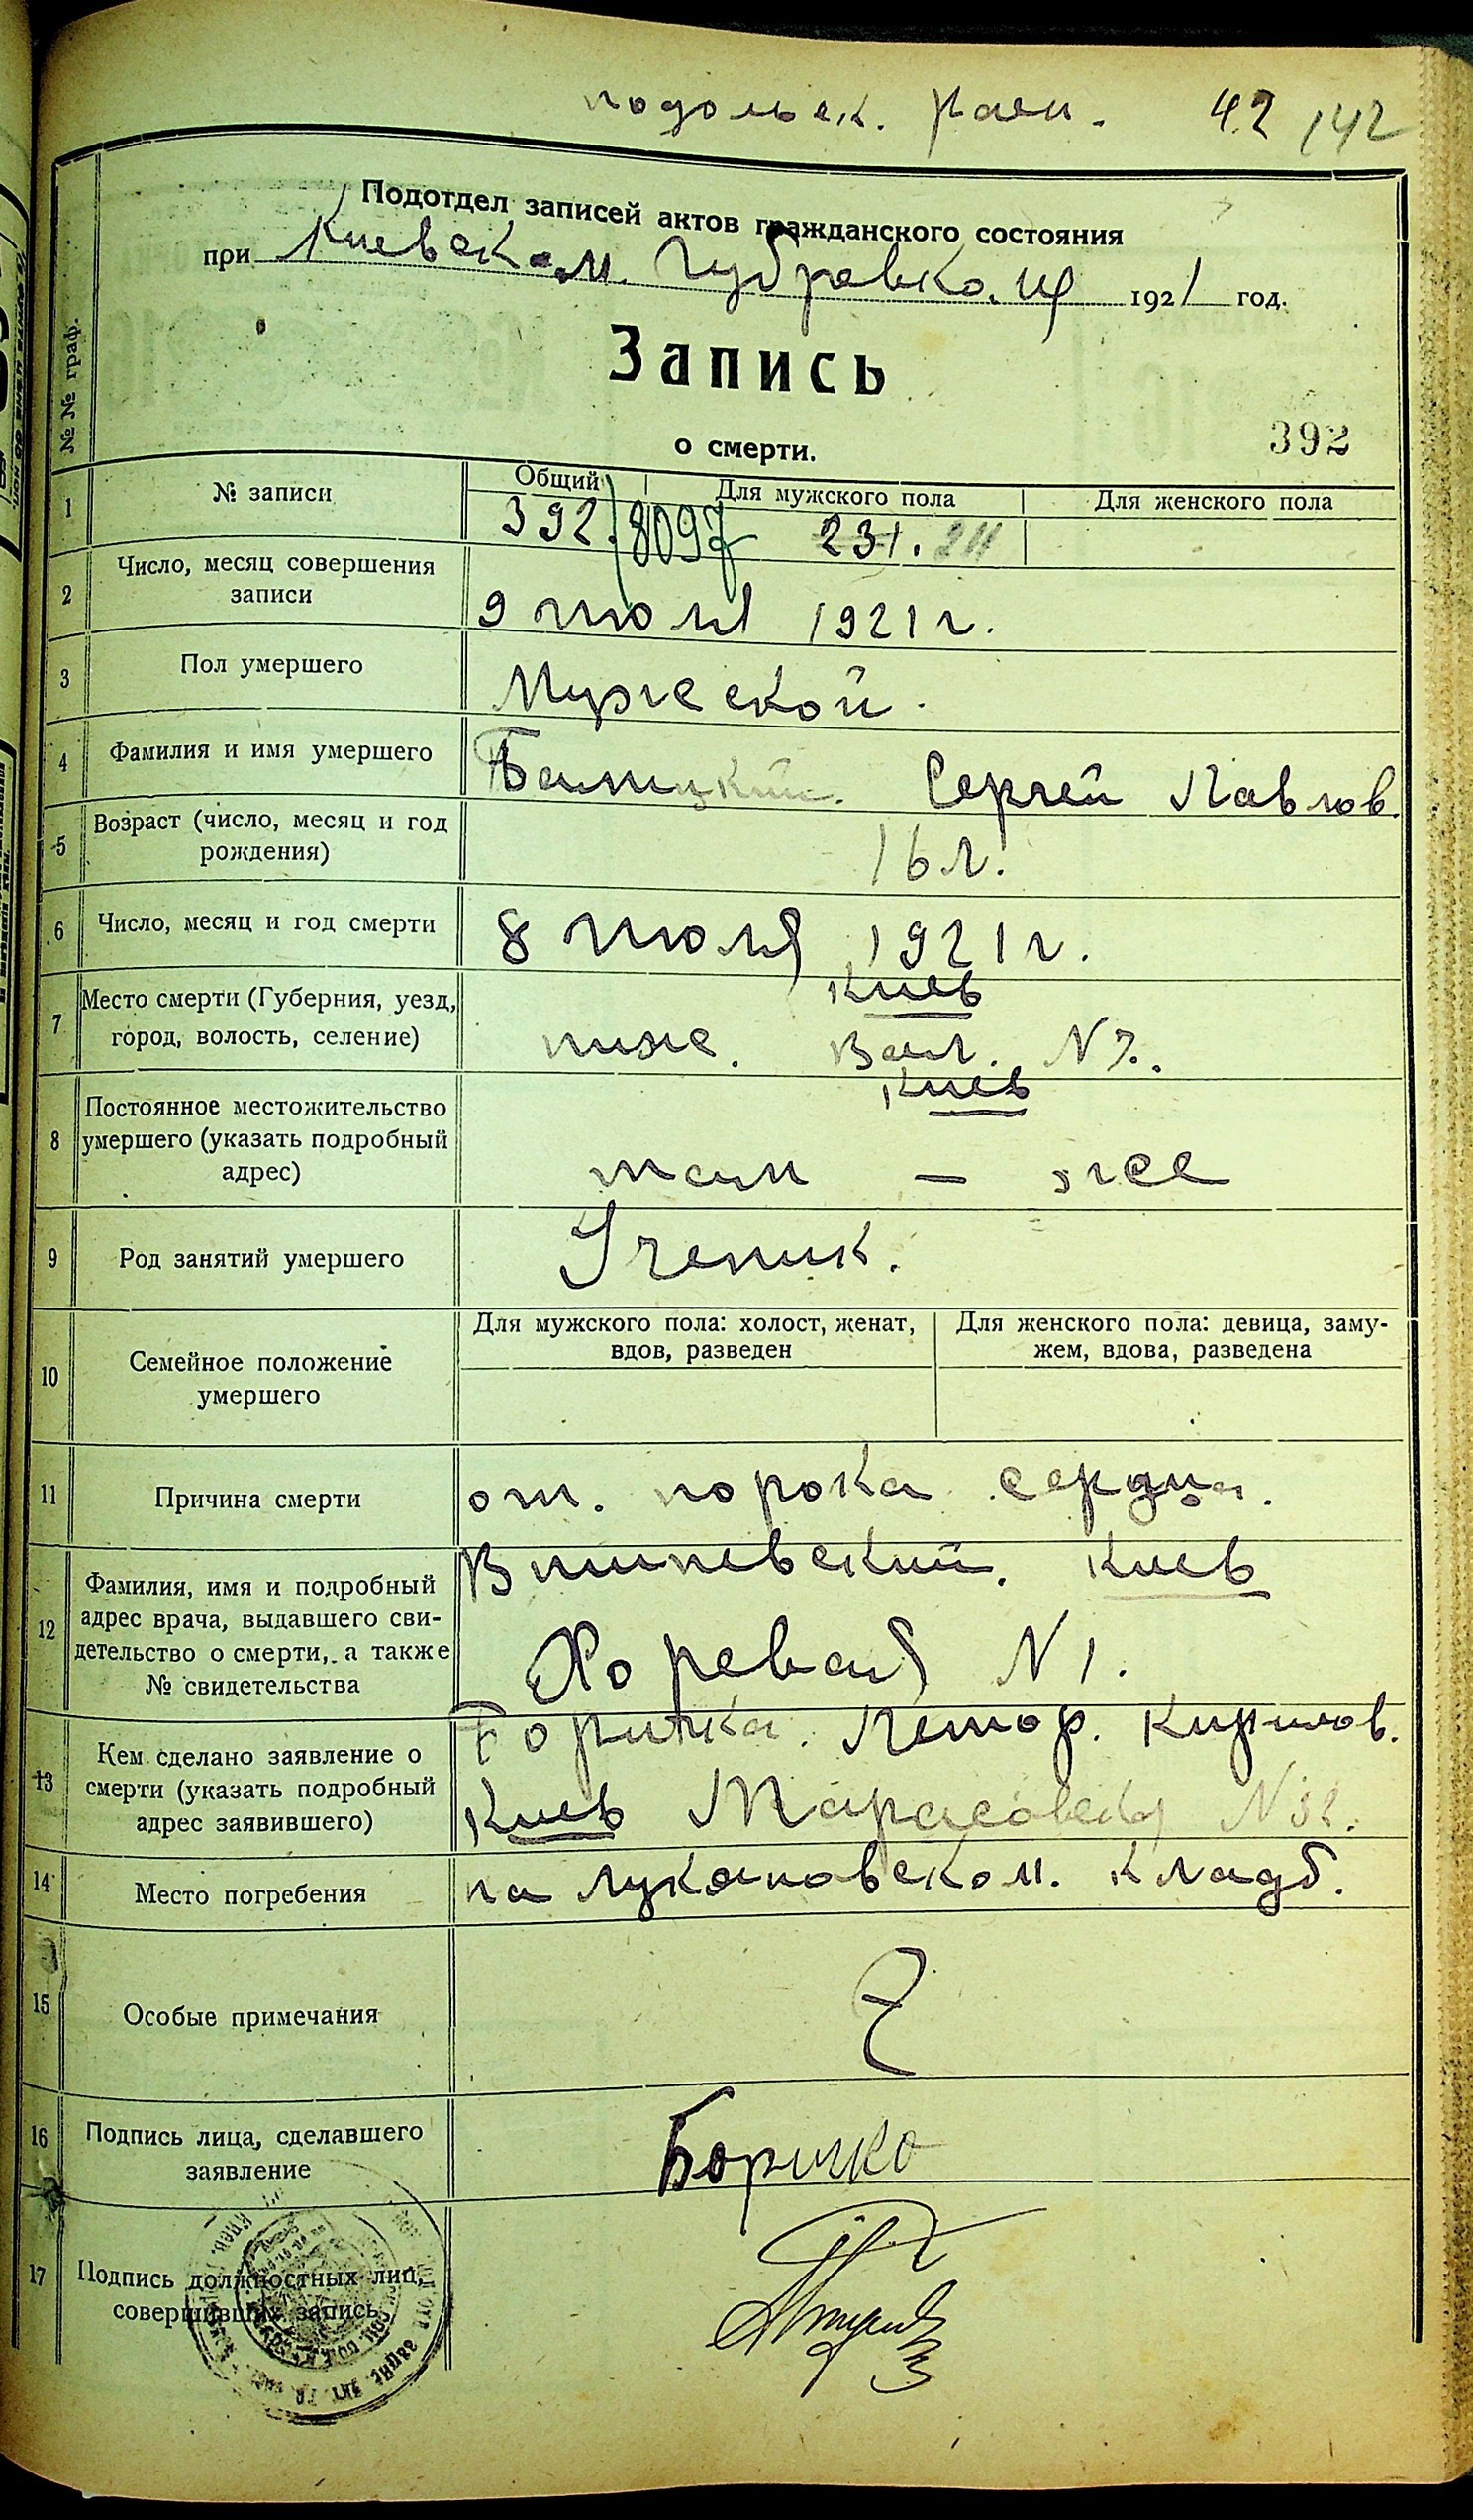 подольск. раен. 42 142
Подотдел записей актов гражданского состояния
при Киевском. Губревко. 1921 год.
Запись
о смерти.
392
№ № граф.
1 № записи Общий Для мужского пола Для женского пола
392. 8097 231.
2 Число, месяц совершения записи
9 Июля 1921 г.
3 Пол умершего
Мужеской.
4 Фамилия и имя умершего
Сергей Павлов.
5 Возраст (число, месяц и год рождения)
16 л.
6 Число, месяц и год смерти
8 Июля 1921 г.
7 Место смерти (Губерния, уезд, город, волость, селение)
Киев
ниже. Вал. N 7.
8 Постоянное местожительство умершего (указать подробный адрес)
Киев
там — же
9 Род занятий умершего
Ученик.
10 Семейное положение умершего
Для мужского пола: холост, женат, вдов, разведен
Для женского пола: девица, замужем, вдова, разведена
11 Причина смерти
от. порока сердца.
12 Фамилия, имя и подробный адрес врача, выдавшего свидетельство о смерти, а также № свидетельства
Вишневский. Киев
Хоревая N 1.
13 Кем сделано заявление о смерти (указать подробный адрес заявившего)
Киев Тарасовская N 32.
14 Место погребения
на Лукяновском. кладб.
15 Особые примечания
16 Подпись лица, сделавшего заявление
17 Подпись должностных лиц, совершивших запись